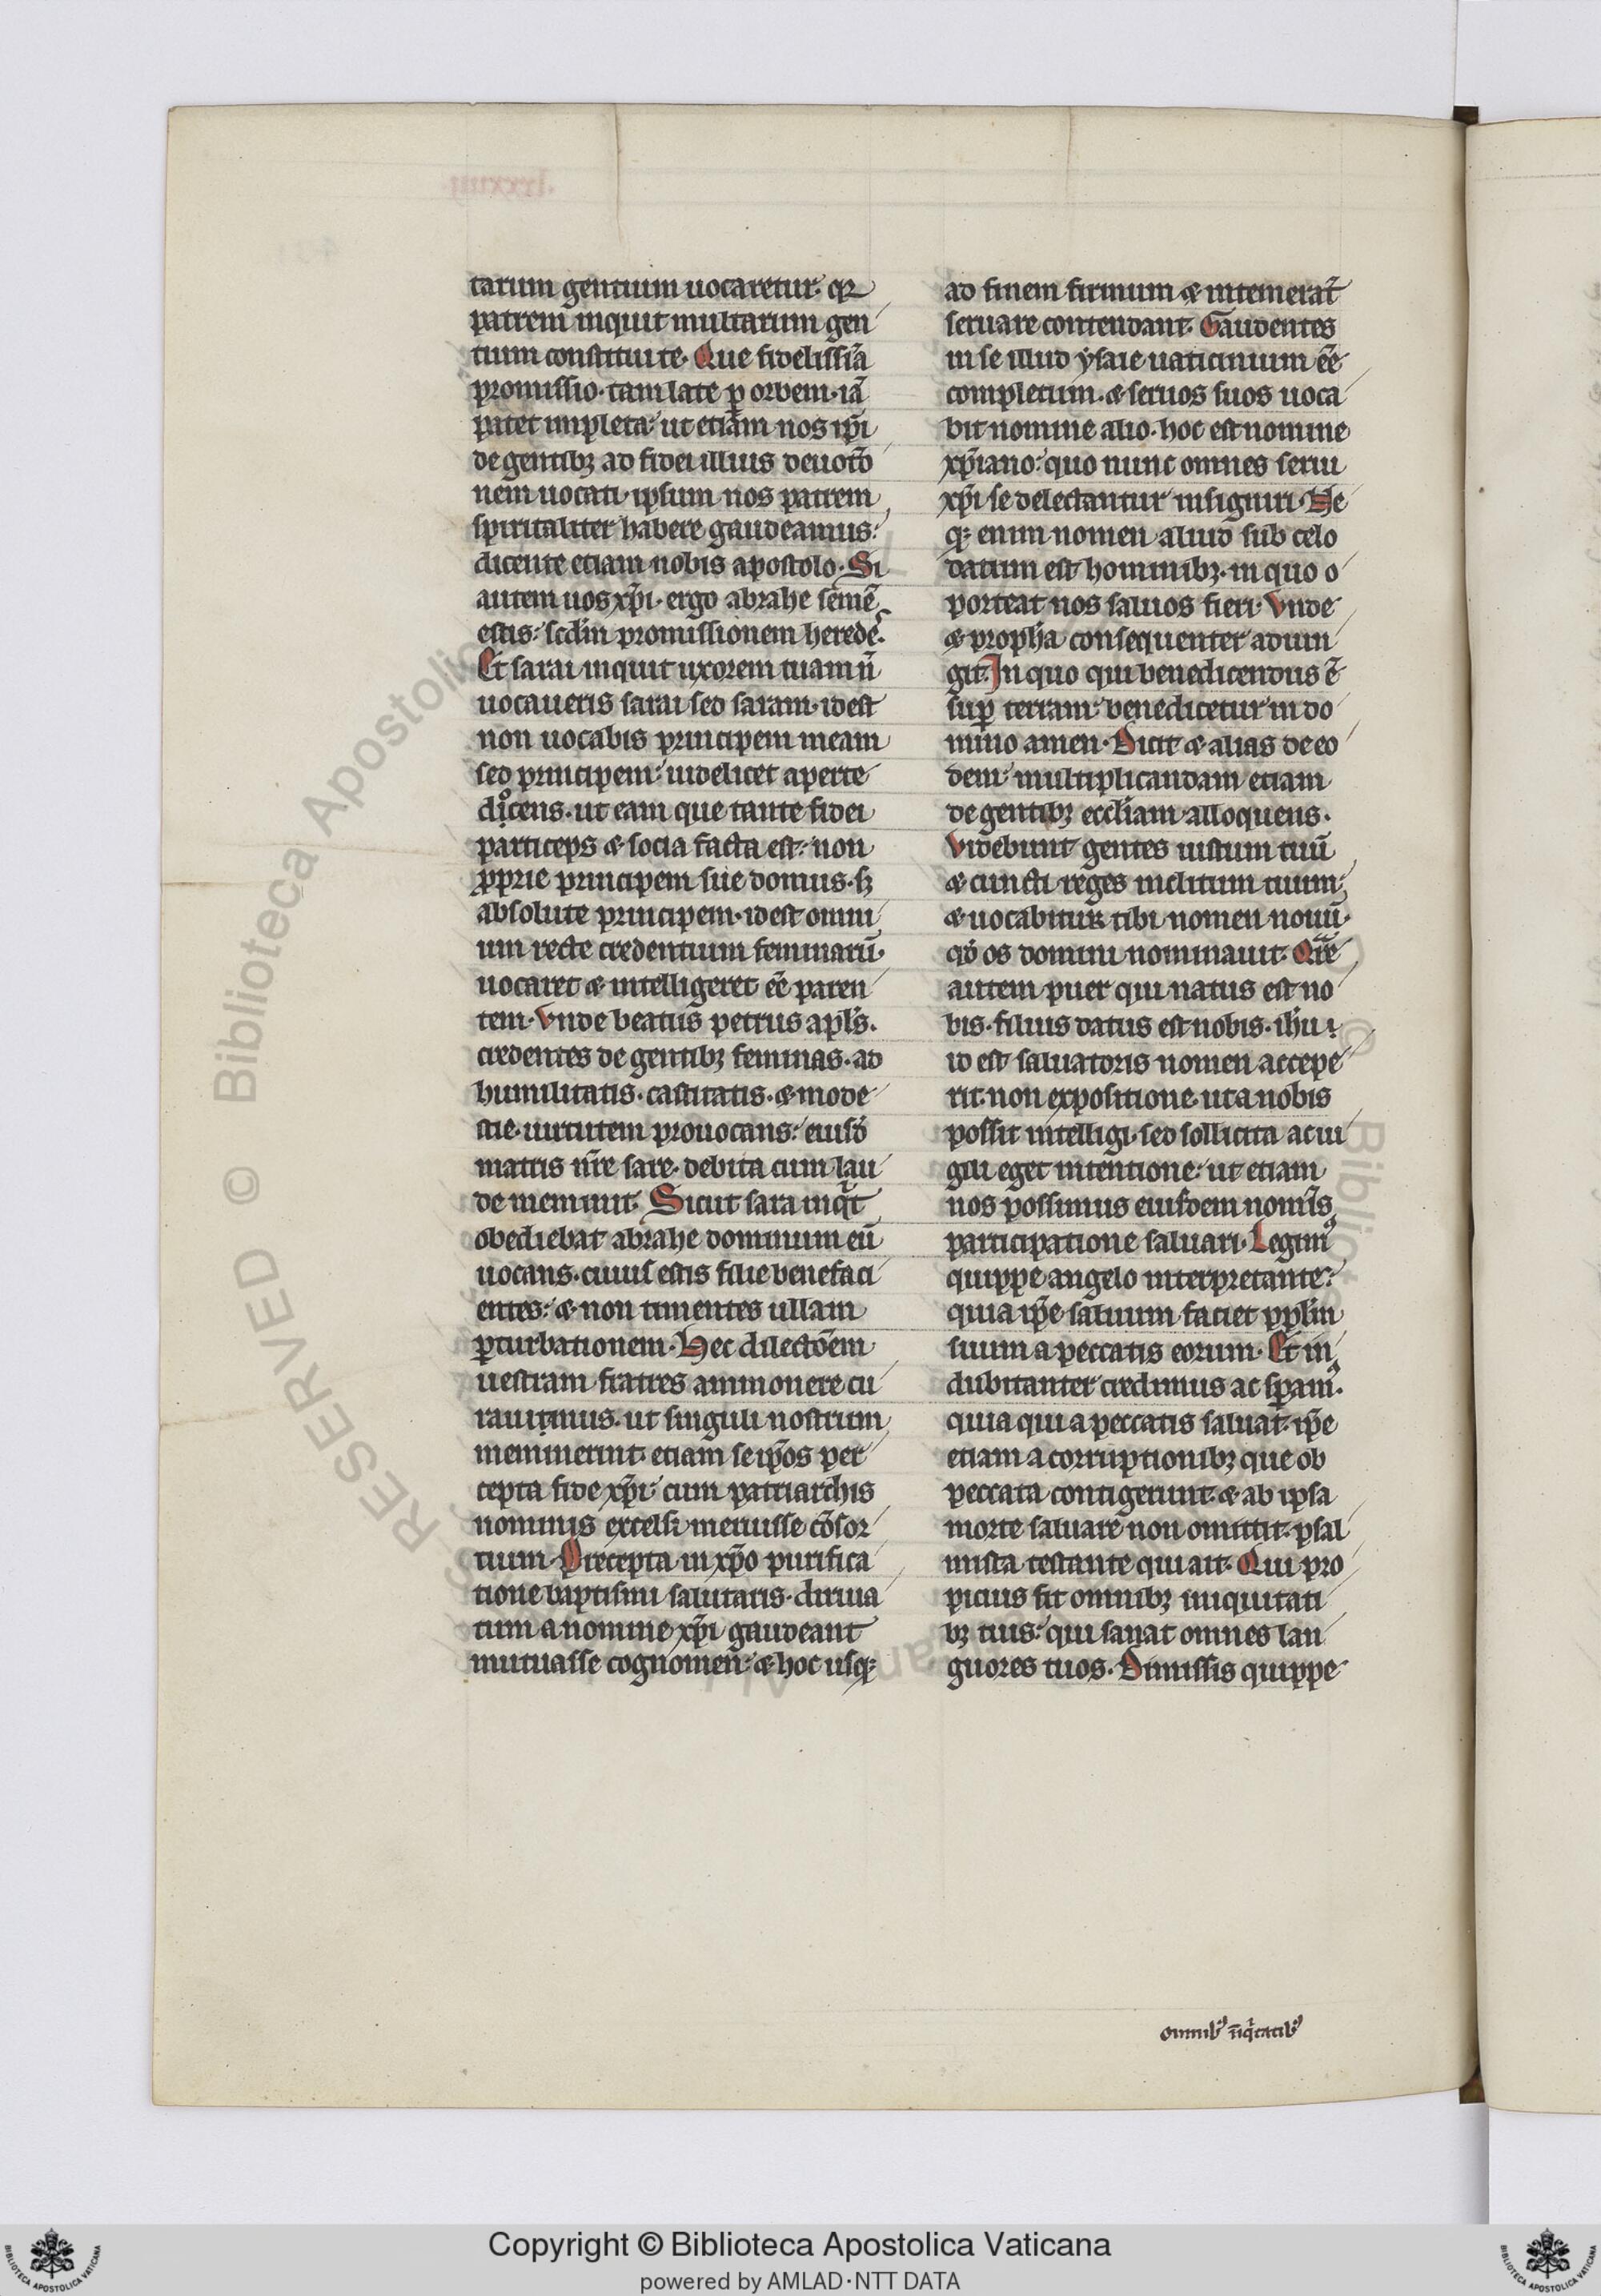 tarum gentium uocaretur. qꝛ
patrem inquit multarum gen
tium constitui te. Que fidelissīa
promissio. tam late ꝑ orbem. iā
patet impleta: ut etiam nos ip̄i
de gentibꝫ ad fidei illius deuotō
nem uocati. ipsum nos patrem
spiritaliter habere gaudeamus:
dicente etiam nobis apostolo. Si
autem uos xp̄i. ergo abrahe semē
estis: scd̄m promissionem herede᷒.
Et sarai inquit uxorem tuam n̄
uocaueris sarai sed saram. id est
non uocabis principem meam
sed principem: uidelicet aperte
dicens. ut eam que tante fidei
particeps & socia facta est: non
ꝓprie principem sue domus. sꝫ
absolute principem. id est omni
um recte credentium feminarū.
uocaret & intelligeret ēē paren
tem. Vnde beatus petrus apl's.
credentes de gentibꝫ feminas. ad
humilitatis. castitatis. & mode
stie. uirtutem prouocans: eiusd̄
matris nr̄e sare. debita cum lau
de meminit. Sicut sara inqͥt
obediebat abrahe dominum eū
uocans. cuius estis filie benefaci
entes: & non timentes ullam
ꝑturbationem. Hec dilectōem
uestram fratres ammonere cu
rauimus. ut singuli nostrum
meminerint. etiam se ip̄os per
cepta fide xp̄i: cum patriarchis
nominis excelsi meruisse cōsor
tium. Precepta in xp̄o purifica
tione baptismi salutaris. diriua
tum a nomine xp̄i gaudeant
mutuasse cognomen: & hoc usqꝫ
ad finem firmum & intemerat̄
seruare contendant. Gaudentes
in se illud ysaie uaticinium ēē
completum. & seruos suos uoca
bit nomine alio. hoc est nomine
xp̄iano: quo nunc omnes serui
xp̄i se delectantur insigniri. Ne
qꝫ enim nomen aliud sub celo
datum est hominibꝫ. in quo o
porteat nos saluos fieri. Vnde
& proph̄a consequenter adiun
git. In quo qui benedicendus ē
suꝑ terram: benedicetur in do
mino amen. Dicit & alias de eo
dem: multiplicandam etiam
de gentibꝫ eccl̄iam alloquens.
Videbunt gentes iustum tuū
& cuncti reges inclitum tuum:
& uocabitur tibi nomen nouū.
qd̄ os domini nominauit. Qͣre
autem puer qui natus est no
bis. filius datus est nobis. ih̄u.
id est saluatoris nomen accepe
rit. non expositione. ut a nobis
possit intelligi. sed sollicita ac ui
gili eget intentione: ut etiam
nos possimus eiusdem nom̄is
participatione saluari. Legimꝰ
quippe angelo interpretante:
quia ip̄e saluum faciet ppl̄m
suum a peccatis eorum. Et in
dubitanter credimus ac sꝑamꝰ.
quia qui a peccatis saluat. ip̄e
etiam a corruptionibꝫ que ob
peccata contigerunt. & ab ipsa
morte saluare non omittit. psal
mista testante qui ait. Qui pro
picius fit omnibꝫ iniquitati
bꝫ tuis: qui sanat omnes lan
guores tuos. Dimissis quippe
omnibꝰ iniqͥtatibꝰ
© Biblioteca Apostolica
RESERVED
© Bibliot
Copyright © Biblioteca Apostolica Vaticana
powered by AMLAD·NTT DATA